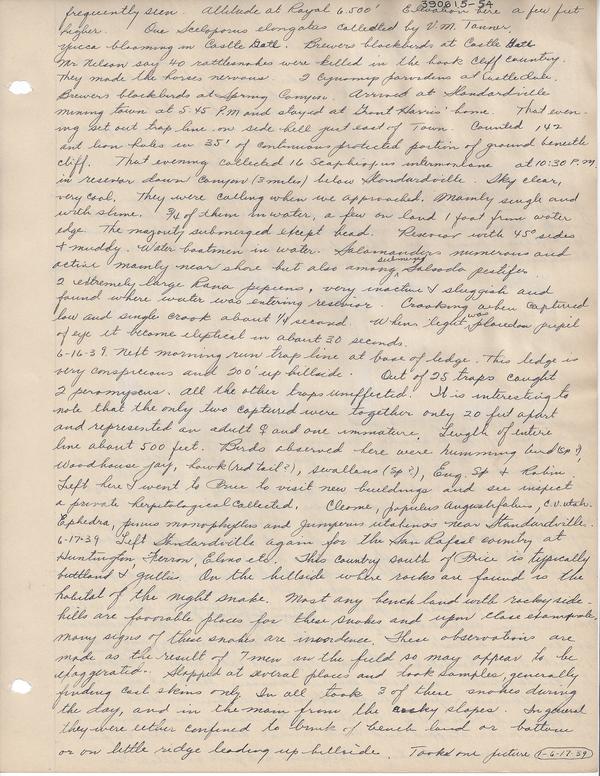 390615-54
frequently seen. Altitude at Royal 6.500' Elevation here a few feet
higher. One Sceloporus elongatus collected by V.M. Tanner.
Yucca blooming in Castle Gate. Brewers blackbirds at Castle Gate
Mr Nelson say 40 rattlesnakes were killed in the book Cliff country.
They made the horses nervous. 2 at Castle Gate.
Brewers blackbirds at Spring Canyon. Arrived at Standardville
mining town at 5:45 P.M and stayed at Grant Harris' home. That even-
ing set out trap line on side hill just east of Town. Counted 142
ant lion holes in 35' of continuous protected portion of ground beneath
cliff. That evening collected 16 Scaphiopus intermontane at 10:30 P.M.
in resevoir down Canyon (3 miles) below Standardville. Sky clear,
very cool. They were calling when we approached. Mainly single and
with slime. 3/4 of them in water, a few on land 1 foot from water
edge. The majority submerged except head. Resevoir with 45° sides
+ muddy. Water boatmen in water. Salamanders numerous and
active mainly near shore but also among submerged Salsoda pestifer.
2 extremely large Rana pipiens, very inactive & sluggish and
found where water was entering resevior Croaking when captured
low and single croak about 1/4 second. When light was placed on pupil
of eye it become eliptical in about 30 seconds.
6-16-39. Next morning run trap line at base of ledge. This ledge is
very conspicious and 200' up hillside. Out of 25 traps caught
2 peromyscus. All the other traps uneffected. It is interesting to
note that the only two captured were together only 20 feet apart
and represented an adult ♀ and one immature. Length of entire
line about 500 feet. Birds observed here were humming bird (sp?),
Woodhouse jay, hawk (red tail?), swallows (sp?), Eng. Sp & Robin
Left here & went to Price to visit new buildings and see inspect
a private herpetological collected. Cleome, populus Angustifolius, C.U. Utah.
Ephedra, pinus monophyllus and Juniperus utahensis near Standardville.
6-17-39 Left Standardville again for the San Rafael country at
Huntington, Ferron, Elmo etc. This country south of Price is typically
buttland & gullies. On the hillside where rocks are found is the
habitat of the night snake. Most any bench land with rocky side-
hills are favorable places for these snakes and upon close
many signs of these snakes are inevidence. These observations are
made as the result of 7 men in the field so may appear to be
exaggerated. Stopped at several places and took samples, generally
finding cast skins only. In all took 3 of these snakes during
the day, and in the main from the rocky slopes. In general
they were either confined to brink of bench land or bottom
or on little ridge leading up hillside. Took one picture 1-6-17-39